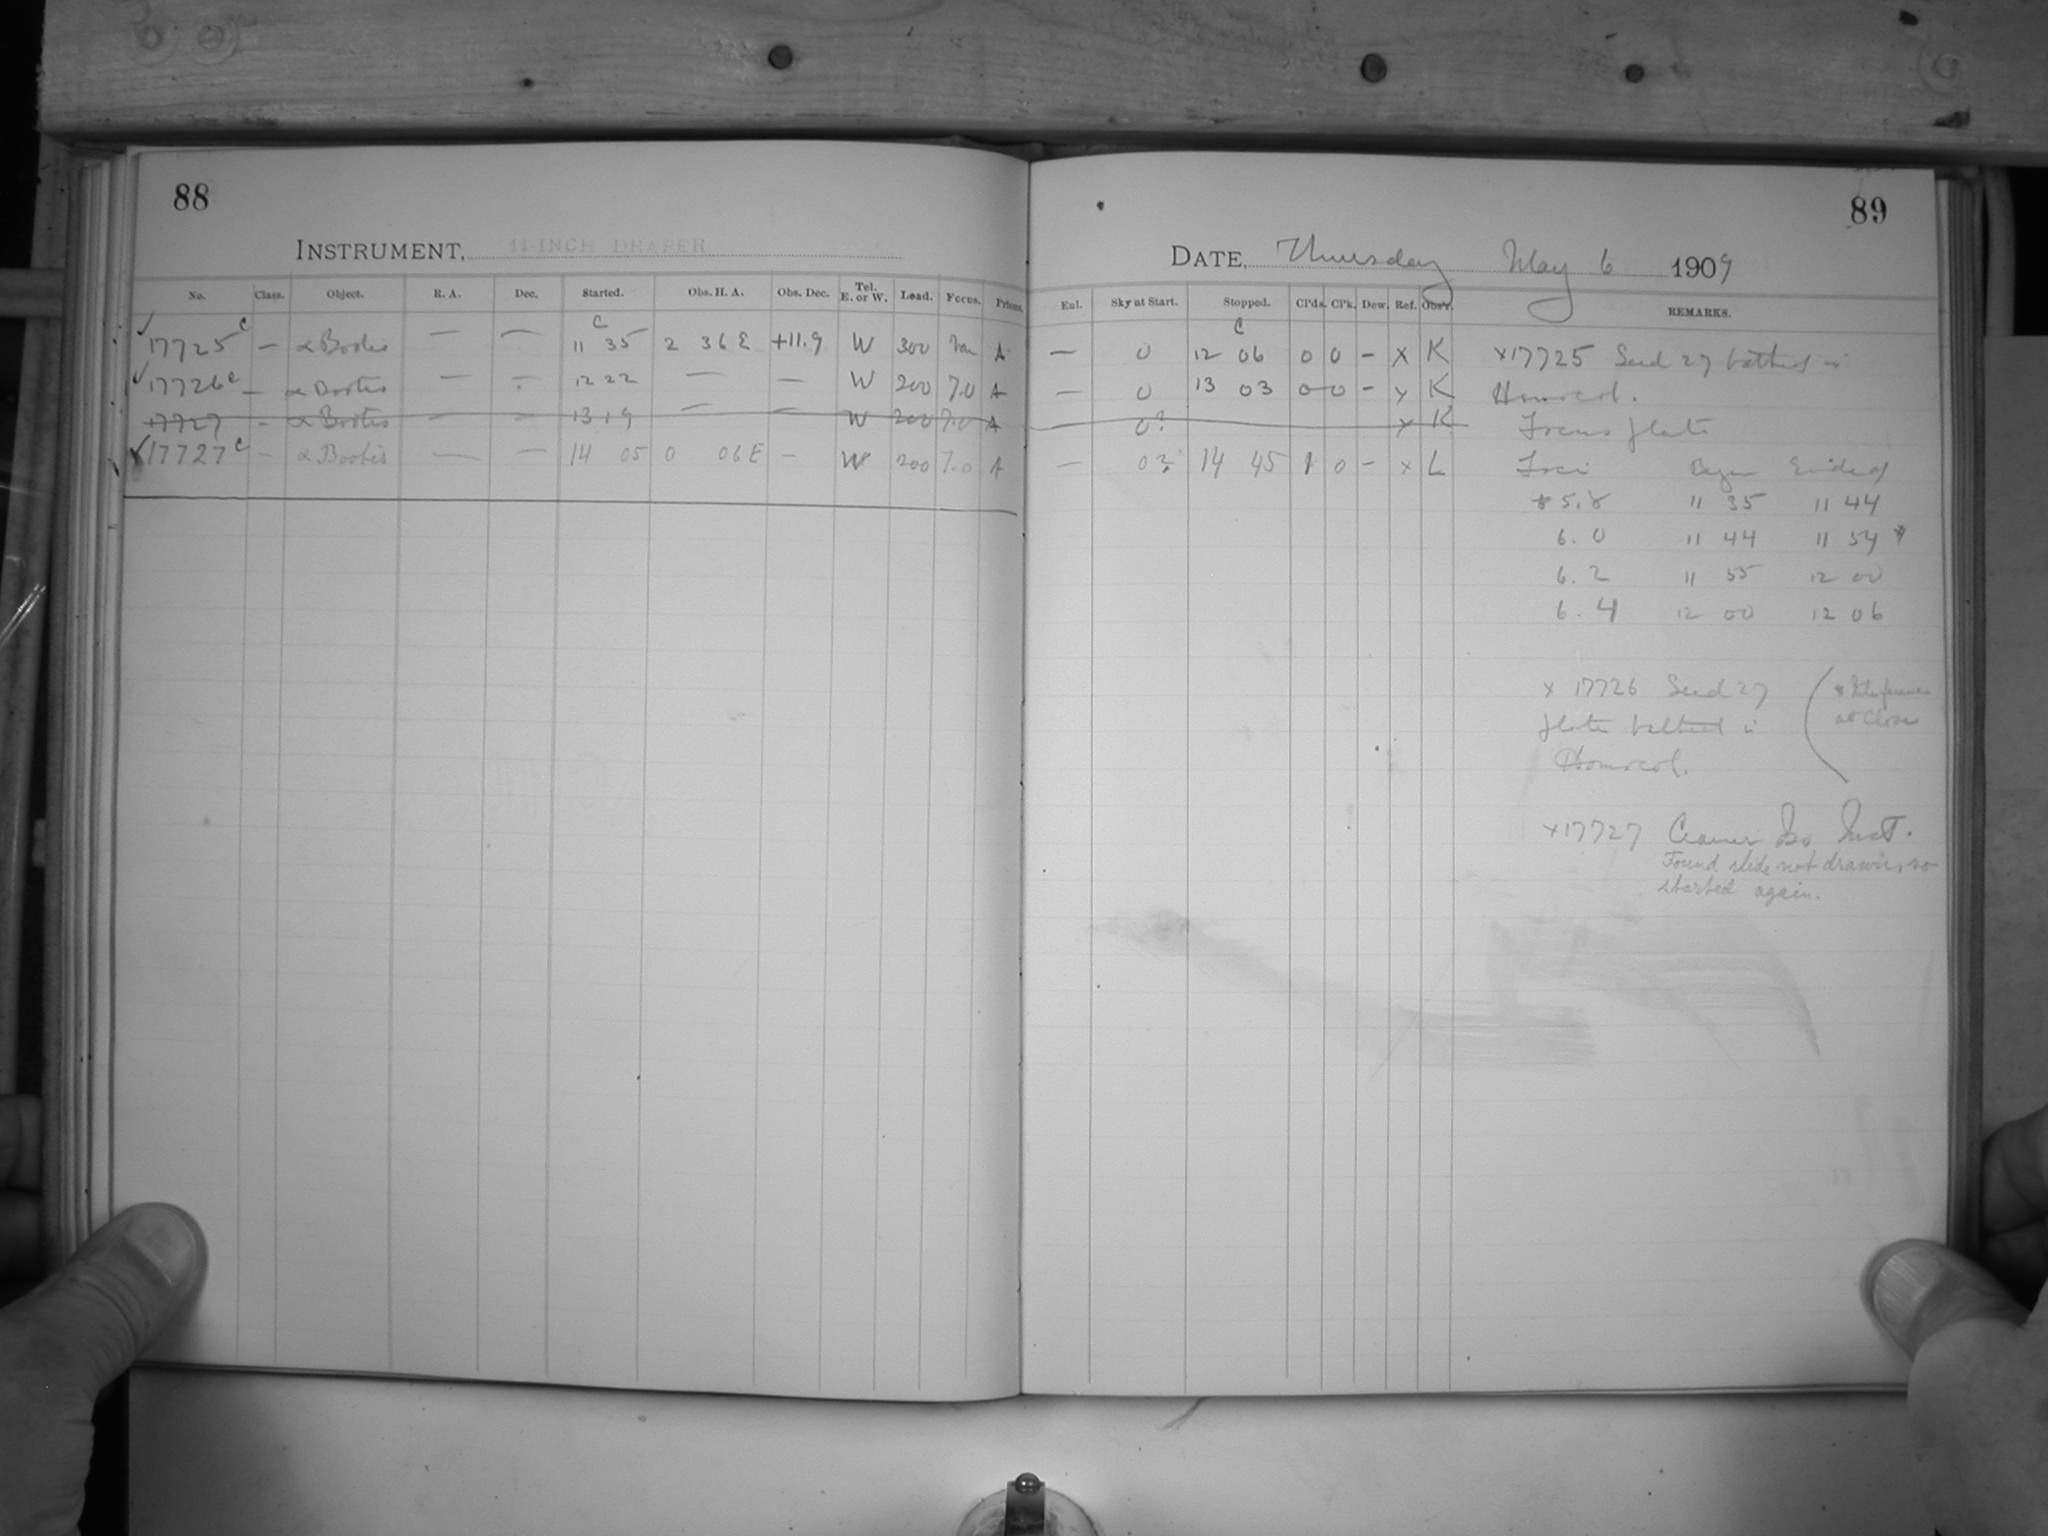 88
INSTRUMENT, 11-INCH DRAPER
No. Class. Object. R. A. Dec. Started. Obs. H. A. Obs. Dec. Tel. E. or W. Load. Focus. Prisms.
✓17725 c — α Bootis — — c 11 35 2 36 E +11.9 W 300 A
✓17726 c — α Bootis — — 12 22 — — W 200 7.0 A
17727 — α Bootis — — 13 19 — — W 200 7.0 A
✓17727 c — α Bootis — — 14 05 0 06 E — W 200 7.0 A
89
DATE, Thursday May 6 1909
Enl. Sky at Start. Stopped. Cl'ds. Cl'k. Dew. Ref. Obs'r. REMARKS.
— 0 c 12 06 0 0 — x K x17725 Seed 27 bathed in
— 0 13 03 0 0 — x K Homocol.
0? x K Focus plate
— 0? 14 45 1 0 — x L Foci Began Ended
* 5.8 11 35 11 44
6.0 11 44 11 54 *
6.2 11 55 12 00
6.4 12 00 12 06
x 17726 Seed 27
plate bathed in
Homocol.
* Interference
at Close
x17727 Cramer Iso Inst.
Found slide not drawn, so
started again.